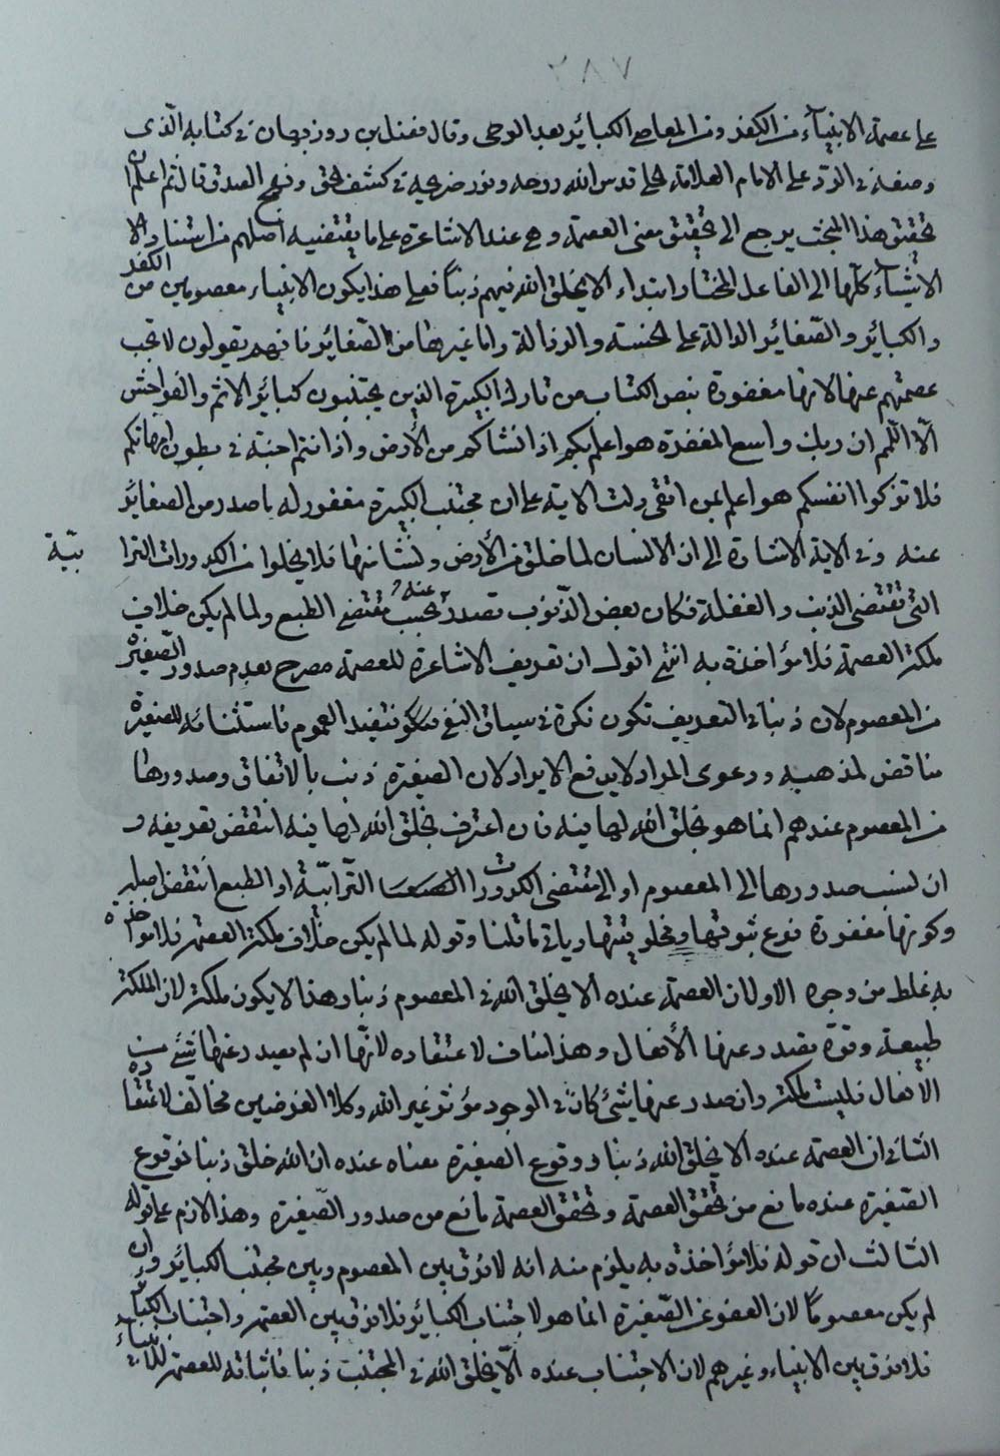 ٢٨٧
على عصمة الانبيآء من الكفر ومن المعاصي الكبائر بعد الوحي وقال فضل بن روزبهان في كتابه الذى
وصفه في الرد على الامام العلامة الحلي قدس الله روحه ونور ضريحه في كشف الحق ونهج الصدق قال ثم اعلم ان
تحقيق هذا المبحث يرجع الى تحقيق معنى العصمة وهي عند الاشاعرة على ما يقتضيه اصلهم من استناد
الاشيآء كلها الى الفاعل المختار ابتداء الا يخلق الله فيهم ذنباً فعلى هذا يكون الانبياء معصومين من الكفر
والكبائر والصغائر الدالة على الخسة والرذالة واما غيرها من الصغائر فانهم يقولون لا تجب
عصمتهم عنها لانها مغفورة بنص الكتاب من تارك الكبيرة الذين يجتنبون كبائر الاثم والفواحش
الّا اللمم ان ربك واسع المغفرة هو اعلم بكم اذ انشاكم من الأرض واذ انتم اجنة في بطون امهاتكم
فلا تزكوا انفسكم هو اعلم بمن اتقى دلت الاية على ان مجتنب الكبيرة مغفور له ما صدر من الصغائر
عنه وفي الاية الاشارة الى ان الانسان لما خلق من الأرض ونشا منها فلا يخلوا من الكدورات الترا بية
التي تقتضى الذنب والغفلة فكان بعض الذنوب تصدر عنه بحسب مقتضى الطبع ولما لم يكن خلاف
ملكة العصمة فلا مؤاخذة به انتهى اقول ان تعريف الاشاعرة للعصمة مصرح بعدم صدور الصغيرة
من المعصوم لان ذنباً في التعريف تكون نكرة في سياق النفي فتفيد العموم فاستثنائه للصغيرة
مناقض لمذهبه ودعوى المراد لا يدفع الايراد لان الصغيرة ذنب بالاتفاق وصدورها
من المعصوم عندهم انما هو بخلق الله لها فيه فان اعترف بخلق الله لها فيه انتقض تعريفه و
ان نسب صدورها الى المعصوم او الى مقتضى الكدورات الترابيّة او الطبع انتقض اصله
وكونها مغفورة فرع ثبوتها ومخلوقيتها وياتي ما قلنا وقوله لما لم يكن خلاف ملكة العصمة فلا مؤاخذة
به غلط من وجوه الاول ان العصمة عنده الا يخلق الله في المعصوم ذنبا وهذا لا يكون ملكة لان الملكة
طبيعة وقوة يصدر عنها الأفعال وهذا مناف لاعتقاده لانها ان لم يصدر عنها شئ من
الأفعال فليست ملكة وان صدر عنها شئ كان في الوجود مؤثر غير الله وكلا الفرضين مخالف لاعتقاده
الثاني ان العصمة عنده الا يخلق الله ذنبا ووقوع الصغيرة معناه عنده ان الله خلق ذنبا فوقوع
الصغيرة عنده مانع من تحقق العصمة وتحقق العصمة مانع من صدور الصغيرة وهذا لازم على قوله
الثالث ان قوله فلا مؤاخذة به يلزم منه انه لا فرق بين المعصوم وبين مجتنب الكبائر وان
لم يكن معصوماً لان العفو عن الصغيرة انما هو لاجتناب الكبائر فلا فرق بين العصمة واجتناب الكبائر
فلا فرق بين الانبياء وغيرهم لان الاجتناب عنده الّا يخلق الله في المجتنب ذنبا فاثباته للعصمة للانبيآء